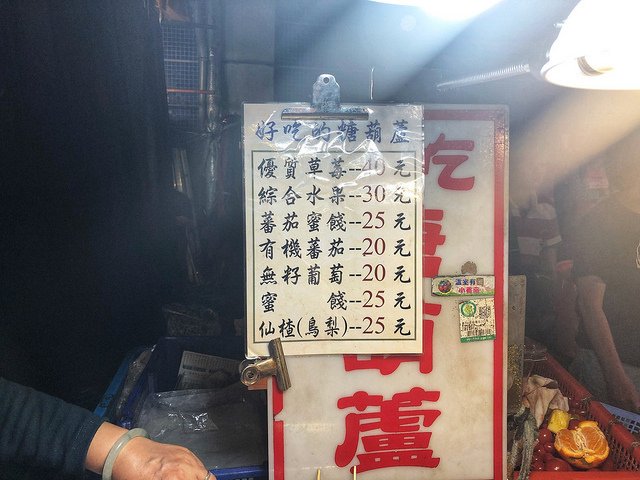 好吃的糖葫蘆
優質草莓--40元
綜合水果--30元
蕃茄蜜餞--25元
有機蕃茄--20元
無籽葡萄--20元
蜜餞--25元
仙楂(鳥梨)--25元
吃
蘆